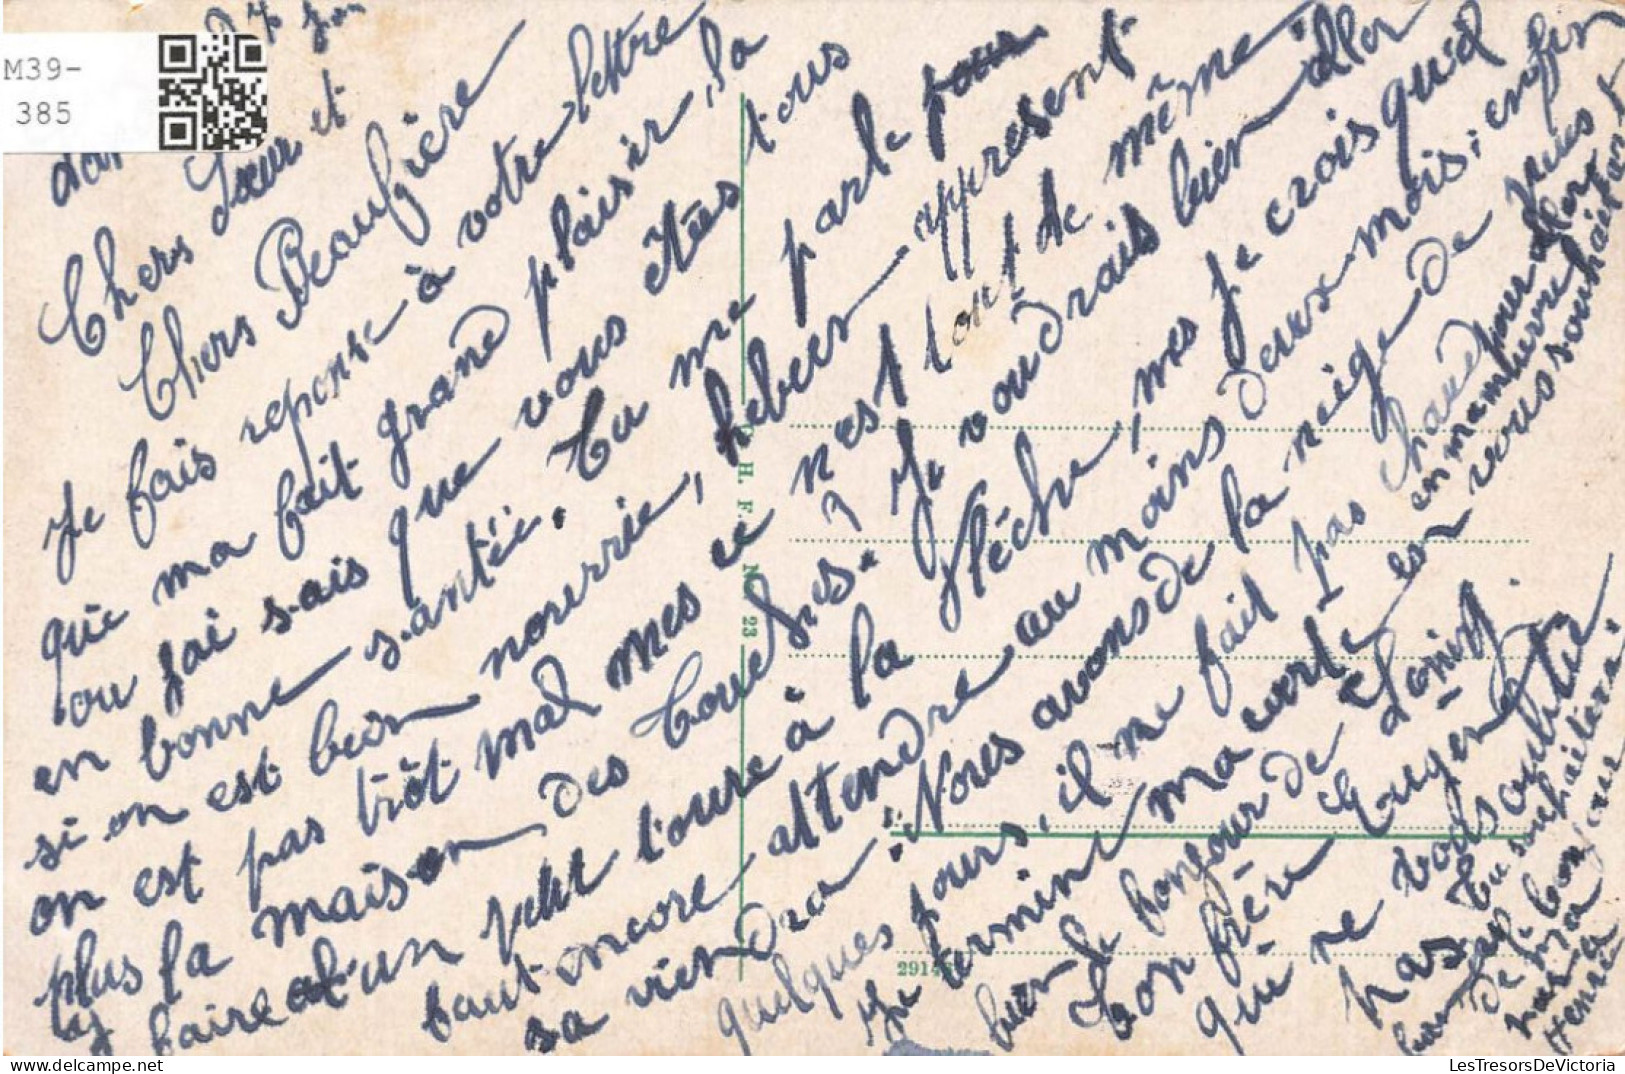 M39-
385
Chers Sœur et
Chers Beaufrère
Je fais reponse à votre lettre
que ma fait grand plaisir, la
ou jai sais que vous etes tous
en bonne santée. Tu me parle
si on est bien nourrie, hebeen appresent
on est pas trôt mal mes ce nest tout de même
plus la maison des Couches. Je voudrais bien aller
y faire un petit tour à la Flèche, mes je crois quil
faut encore attendre au moins deux mois, enfin
sa viendra. Nous avons de la neige de puis
quelques jours, il me fait pas chaud pour aller
en manheuvre
Je termine ma carte en vous souhaitant
bien le bonjour de Loin
ton frère Eugene
qui ne vous oublie
pas. Tu souhaitera
bien le bonjour
de ma
par a
Henri
C. H. F. N. 23
2914
LesTresorsDeVictoria